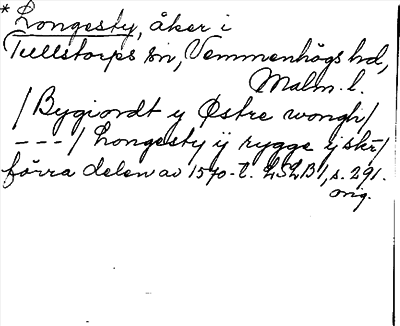 * Longesty, åker i
Tullstorps sn, Vemmenhögs hd,
Malm. l.
/ Bygiordt y Østre wongh /
--- / Longesty ij rygge ij skr /
förra delen av 1570-t. LSLB 1, s. 291.
orig.